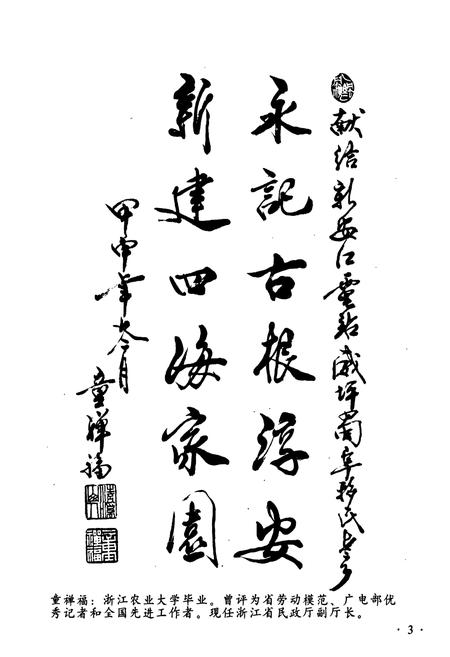 献给新安江電站威坪蜀阜移民
永記古根淳安
新建四海家園
甲申年月
童禪福
童禅福：浙江农业大学毕业。曾评为省劳动模范、广电部优
秀记者和全国先进工作者。现任浙江省民政厅副厅长。
· 3 ·